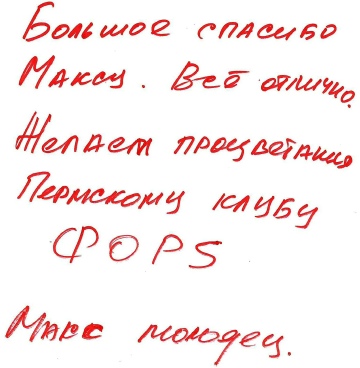 Большое спасибо
Максу. Всё отлично.
Желаем процветания
Пермскому клубу
ФОРS
Макс молодец.